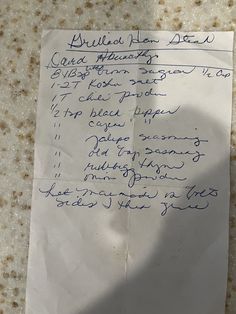 Grilled Ham Steak
Card
8 Tbsp brown sugar 1/2 Cup
1-2 T Kosher salt
1 T chili powder
1/2 tsp black pepper
" cayenne "
" seasoning
" old bay seasoning
" thyme
" onion powder
Let marinade on both
sides then grill